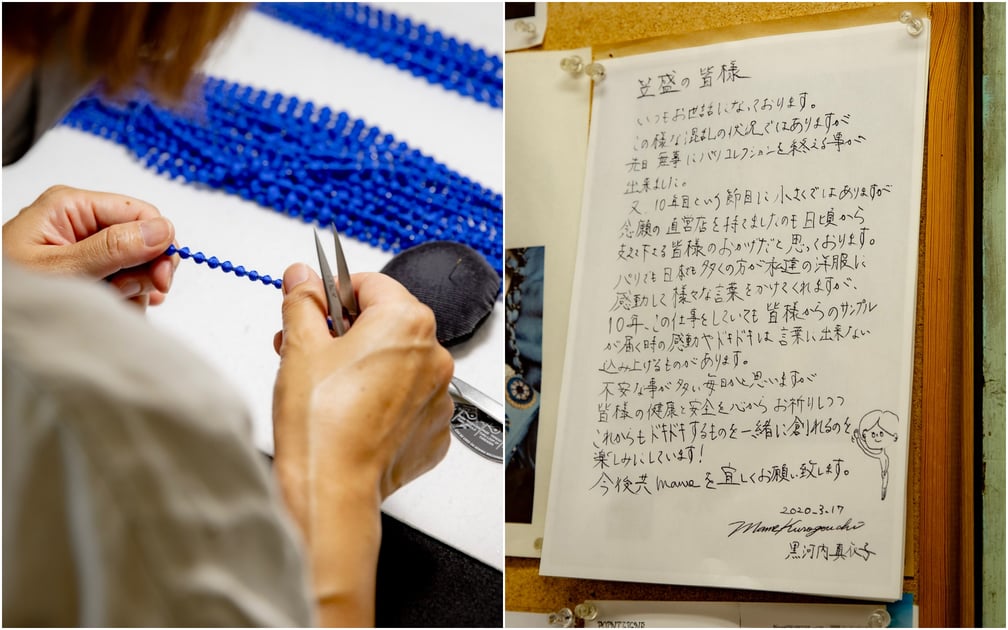 笠盛の皆様
いつもお世話になっております。
この様な混乱の状況ではありますが
先日 無事にパリコレクションを終える事が
出来ました。
又、10年目という節目に小さくではありますが
念願の直営店を持てましたのも日頃から
支えて下さる皆様のおかげだと思っております。
パリでも日本でも多くの方が私達の洋服に
感動して様々な言葉をかけてくれますが、
10年、この仕事をしていても皆様からのサンプル
が届く時の感動やドキドキは言葉に出来ない
込み上げるものがあります。
不安な事が多い毎日かと思いますが
皆様の健康と安全を心からお祈りしつつ
これからもドキドキするものを一緒に創れるのを
楽しみにしています!
今後共mameを宜しくお願い致します。
2020.3.17
Mame Kurogouchi
黒河内真衣子